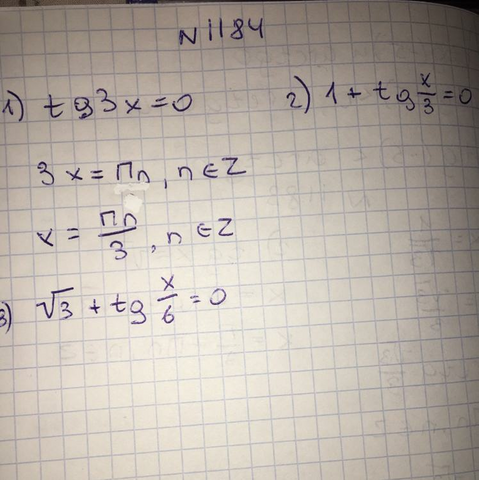 N 1184
1) tg3x=0
2) 1+tg x/3=0
3x=Пn, n∈Z
x=Пn/3, n∈Z
3) √3+tg x/6=0